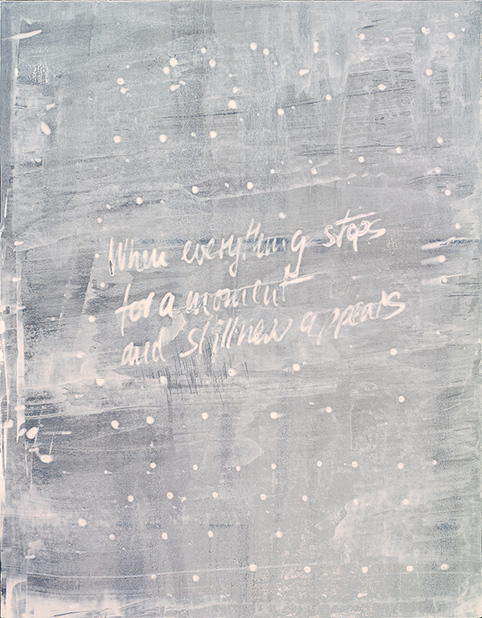 When everything stops
for a moment
and stillness appears